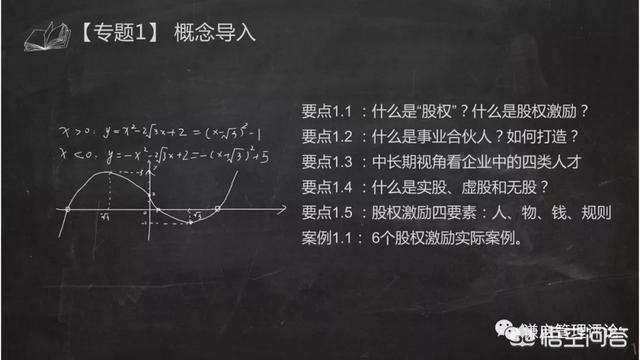 【专题1】 概念导入
x>0: y=x²-2√3x+2=(x-√3)²-1
x<0: y=-x²-2√3x+2=-(x+√3)²+5
要点1.1 ：什么是“股权”？什么是股权激励？
要点1.2 ：什么是事业合伙人？如何打造？
要点1.3 ：中长期视角看企业中的四类人才
要点1.4 ：什么是实股、虚股和无股？
要点1.5 ：股权激励四要素：人、物、钱、规则
案例1.1： 6个股权激励实际案例。
悟空问答